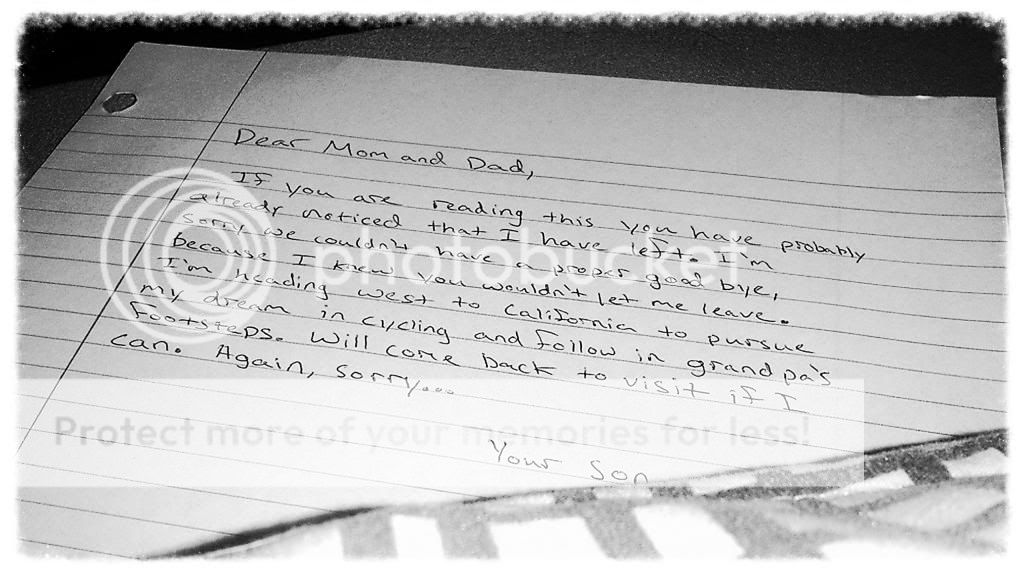 Dear Mom and Dad,
If you are reading this you have probably
already noticed that I have left. I'm
sorry we couldn't have a proper good bye,
because I knew you wouldn't let me leave.
I'm heading west to California to pursue
my dream in cycling and follow in grandpa's
footsteps. Will come back to visit if I
can. Again, sorry....
Your Son
photobucket
Protect more of your memories for less!